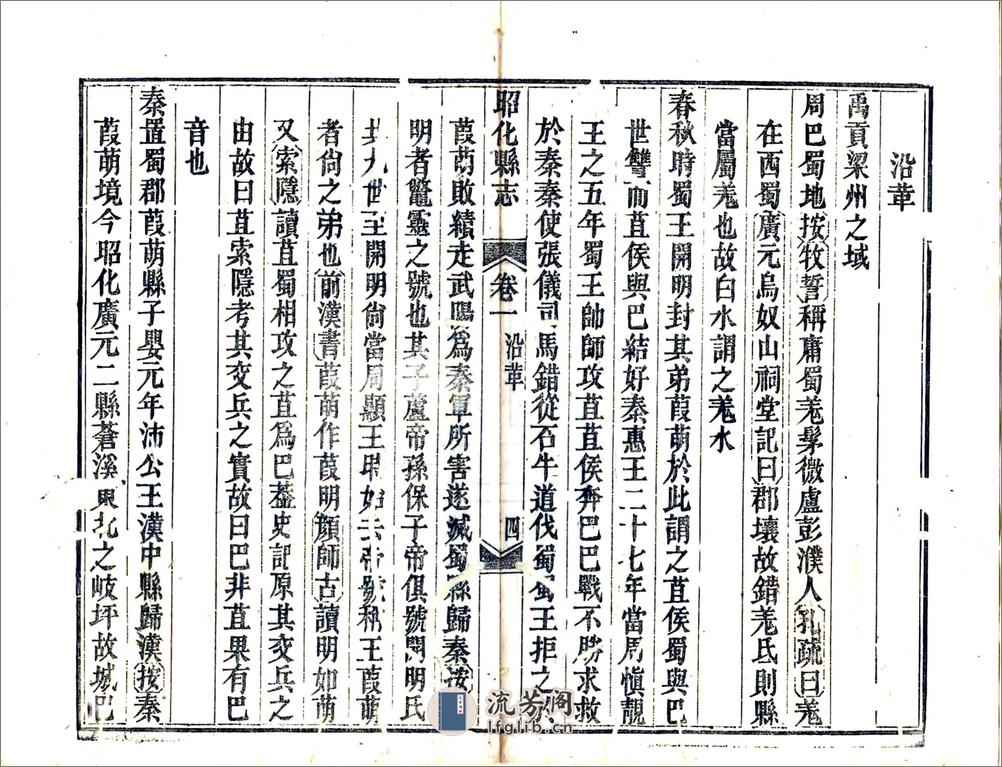 沿革
禹貢梁州之域
周巴蜀地按牧誓稱庸蜀羌髳微盧彭濮人孔疏曰羌
在西蜀廣元烏奴山祠堂記曰郡壤故錯羌氐則縣
當屬羌也故白水謂之羌水
春秋時蜀王開明封其弟葭萌於此謂之苴侯蜀與巴
世讐而苴侯與巴結好秦惠王二十七年當周慎靚
王之五年蜀王帥師攻苴苴侯奔巴巴戰不勝求救
於秦秦使張儀司馬錯從石牛道伐蜀蜀王拒之
昭化縣志 卷一 沿革 四
葭萌敗績走武陽爲秦軍所害遂滅蜀縣歸秦按
明者鼈靈之號也其子蘆帝孫保子帝俱號開明氏
共九世至開明尙當周顯王時始去帝號稱王葭萌
者尙之弟也前漢書葭萌作葭明顏師古讀明如萌
又索隱讀苴蜀相攻之苴爲巴葢史記原其交兵之
由故曰苴索隱考其交兵之實故曰巴非苴果有巴
音也
秦置蜀郡葭萌縣子嬰元年沛公王漢中縣歸漢按秦
葭萌境今昭化廣元二縣蒼溪東北之岐坪故城巴
流芳阁
lfglib.cn